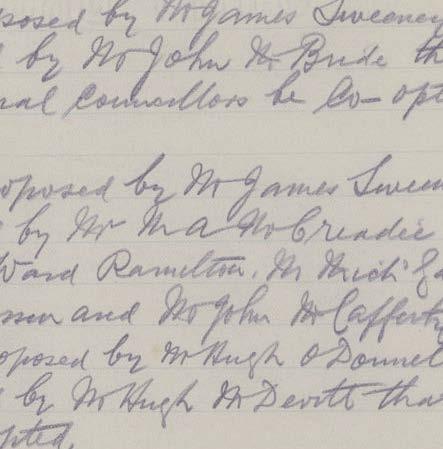 posed by Mr James Sweeney
d by Mr John McBride th
ral Councillors be Co-opt
oposed by Mr James Sween
d by Mr M A McCreadie
Ward Ramelton, Mr Mich
ssen and Mr John McCafferty
oposed by Mr Hugh O'Donnel
d by Mr Hugh McDevitt tha
pted.